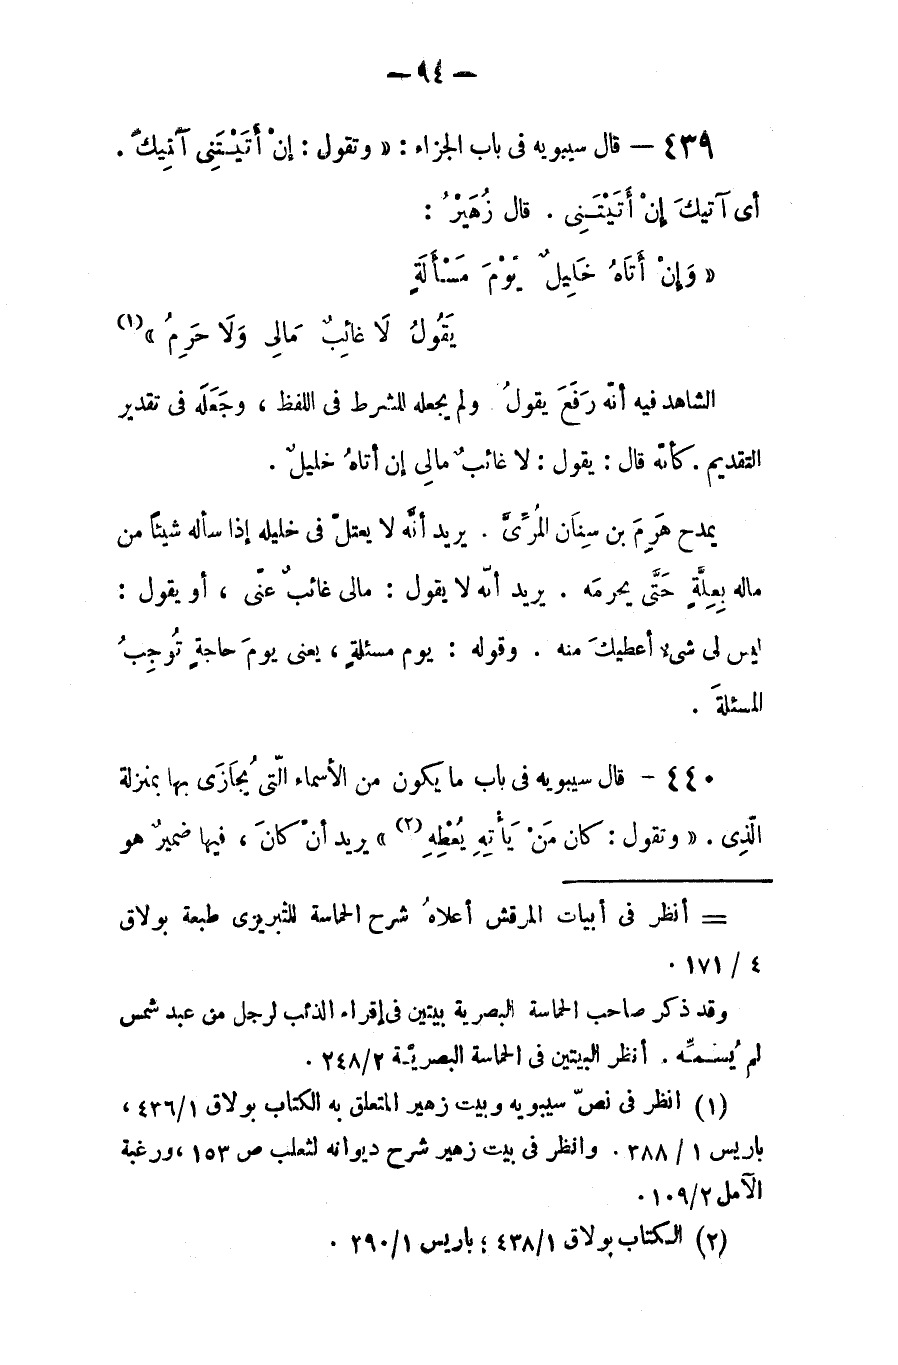 — ٩٤ —
٤٣٩ — قال سيبويه فى باب الجزاء : « وتقول : إنْ أَتَيْتَنِى آتيكَ .
أى آتيكَ إنْ أَتَيْتَـنِى . قال زُهَيْرُ :
« وَإِنْ أَتَاهُ خَلِيلٌ يَوْمَ مَسْأَلَةٍ
يَقُولُ لَا غائِبٌ مَالِى وَلَا حَرِمُ » (١)
الشاهد فيه أنّه رَفَعَ يقولُ ولم يجعله للشرط فى اللفظ ، وجَعَلَه فى تقدير
التقديم . كأنّه قال : يقول : لا غائبٌ مالِى إن أتاهُ خليلٌ .
يمدح هَرِمَ بن سِنَان المُرِّىَّ . يريد أنَّه لا يعتلّ فى خليله إذا سأله شيئًا من
ماله بِعِلَّةٍ حَتَّى يحرمَه . يريد أنّه لا يقول : مالى غائبٌ عنّى ، أو يقول :
ليس لى شىء أعطيكَ منه . وقوله : يوم مسئلةٍ ، يعنى يومَ حاجةٍ تُوجِبُ
المسئلةَ .
٤٤٠ – قال سيبويه فى باب ما يكون من الأسماء الّتى يُجَازَى بها بمنزلة
الّذِى . « وتقول : كان مَنْ يَأْتِهِ يُعْطِهِ (٢) » يريد أنْ كانَ ، فيها ضميرٌ هو
= أنظر فى أبيات المرقش أعلاهُ شرح الحماسة للتبريزى طبعة بولاق
٤ / ١٧١ .
وقد ذكر صاحب الحماسة البصرية بيتين فى إقراء الذئب لرجل من عبد شمس
لم يُسَـمِّه . أنظر البيتين فى الحماسة البصريّة ٢٤٨/٢ .
(١) انظر فى نصّ سيبويه وبيت زهير المتعلق به الكتاب بولاق ٤٣٦/١ ،
باريس ١ / ٣٨٨ . وانظر فى بيت زهير شرح ديوانه لثعلب ص ١٥٣ ، ورغبة
الآمل ١٠٩/٢ .
(٢) الكتاب بولاق ٤٣٨/١ ؛ باريس ٢٩٠/١ .